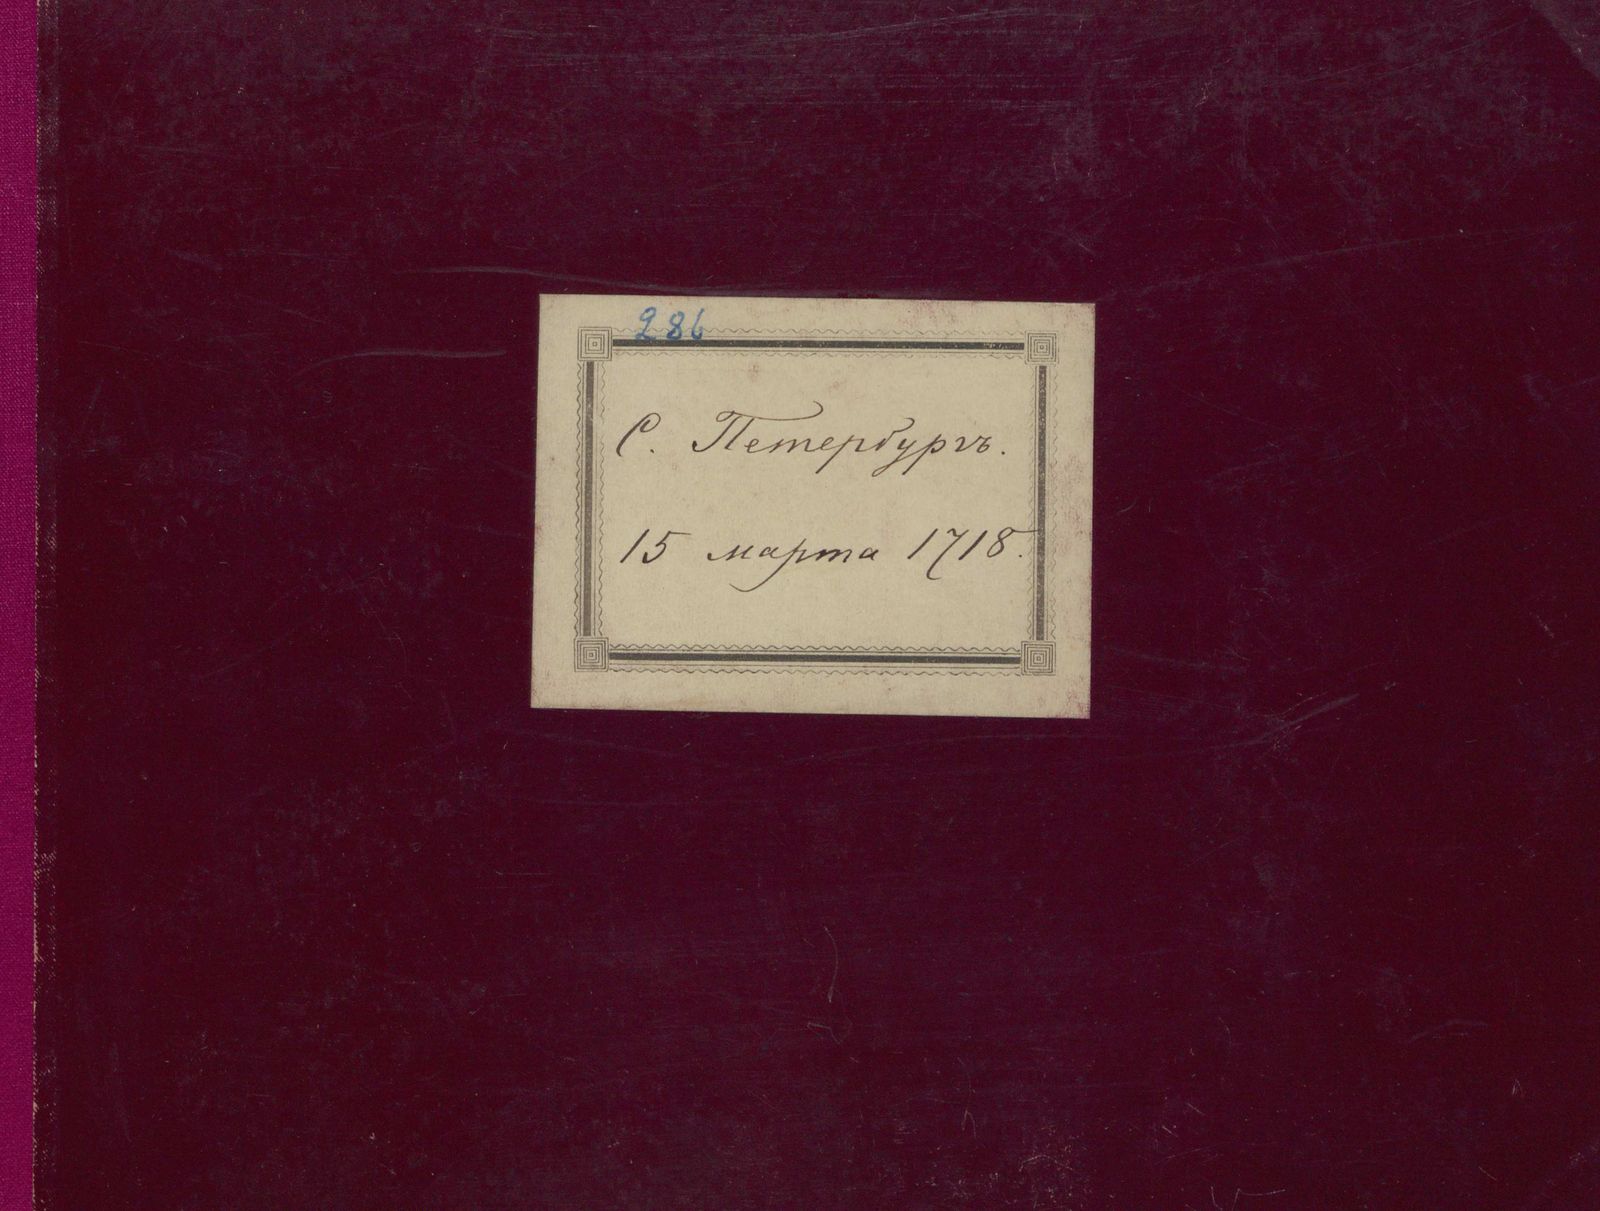 286
С. Петербургъ.
15 марта 1718.